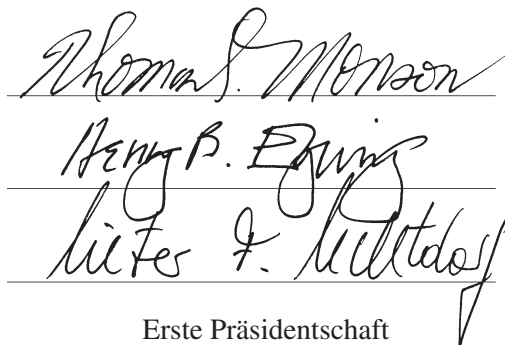 Thomas S. Monson
Henry B. Eyring
Dieter F. Uchtdorf
Erste Präsidentschaft